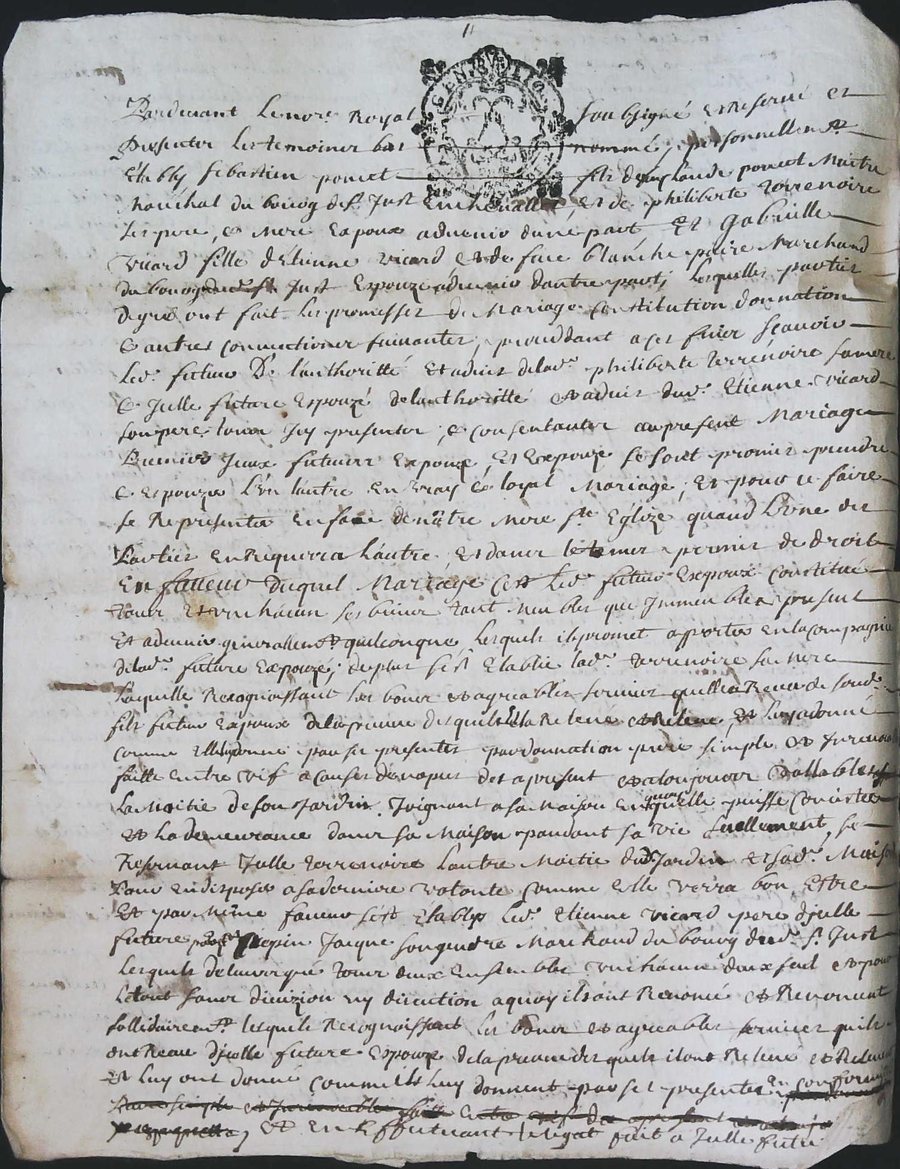 Pardevant Le nore Royal soubsigné et Reservé et
presenter les temoines bas nommés, personnellemt
Etably sebastien poncet fils de claude poncet Maitre
Maréchal du bourg de st Just En chevallet, et de philiberte terrenoire
ses pere, & Mere Espoux advenir d'une part Et Gabrielle
vicard fille d'Etienne vicard et de blanche paire Marchand
du bourg dud st Just Espouze advenir d'autre part, Lesquelles parties
de gré ont fait les promesses de Mariage Constitution donnation
& autres conventiones suivantes, proceddant a ces fines Scavoir
Led. futur De l'authorité Et advis de lad. philiberte terrenoire sa mere
& Jcelle future Espouze de l'authoritté et advis dud. Etienne vicard
son pere tous Jcy presenter, & consentanter au present Mariage
Premier Jceux futures Espoux, Et Espouze se sont promis prendre
& Espouzer L'un l'autre En vray & loyal Mariage, Et pour ce faire
se Representer En face de nôtre Mere ste Eglize quand L'une des
Parties En Requerra L'autre Et dans le temps permis de droit
En faveur Duquel Mariage Cest Led. futur Espoux constitue
tous Et un chacun ses biens tant Meubles que Jmmeubles present
Et advenir generallemt quelconque lesquels il promet apporter En la compagnie
de lad. future Espouze, de plus s'est Etablie lad. terrenoire sa Mere
Laquelle Recognoissant les bons et agreables services qu'elle a Receu de sond.
fils futur Espoux de la preuve desquels Ella Relevé et Releve, et luy a donné
comme elle donne par ses presentes par donnation pure simple et Jrrevocable
faitte Entre vif a cause de nopces des a present et a toujours vallable
La Moitié de son Jardin Joignant a sa maison En quoy quelle puisse consister
et La demeurance dans sa Maison pandant sa vie seullement, se
Reservant Jcelle terrenoire L'autre Moitié dud Jardin et sad. Maison
Pour En disposer a sa derniere volonté comme elle verra bon Estre
Et par Même faveur s'est Etably Led. Etienne vicard pere d'Jcelle
future Jacque son gendre Marchand du bourg dud. st Just
Lesquels de leur gré tous deux Ensembles un chacun d'eux seul et pour
Le tout sans divizion ny discution a quoy ils ont Renoncé et Renoncent
sollidairemt lesquels Recognoissant les bons et agreables services qu'ils
ont Receu d'Jcelle future Espouze de la preuve desquels ils ont Relevé et Relevent
et Luy ont donné comme ils Luy donnent par ses presentes En conformité
Et En Effectuant le legat fait a Jcelle future